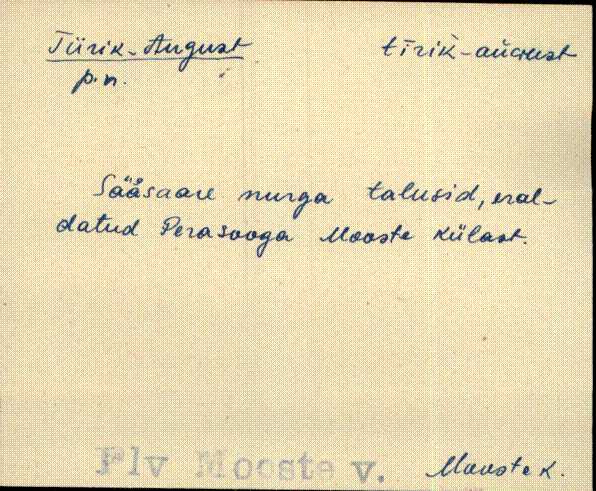 Tiirik-August tīrik-auGust
p.n.
Sääsaare nurga talusid, eral-
datud Perasooga Mooste külast.
Plv Mooste v. Mooste k.